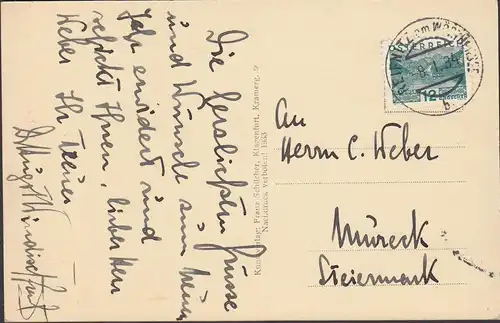 Die herzlichsten Grüsse
und Wünsche zum Neuen
Jahr erwidert und
schickt Ihnen, lieber Herr
Weber Ihr treuer
Windischbauer
Kunstverlag: Franz Schilcher, Klagenfurt, Kramerg.
Nachdruck verboten! 1333
REIFNITZ am WÖRTHERSEE
8.I.34
b
12
An
Herrn C. Weber
Mureck
Steiermark